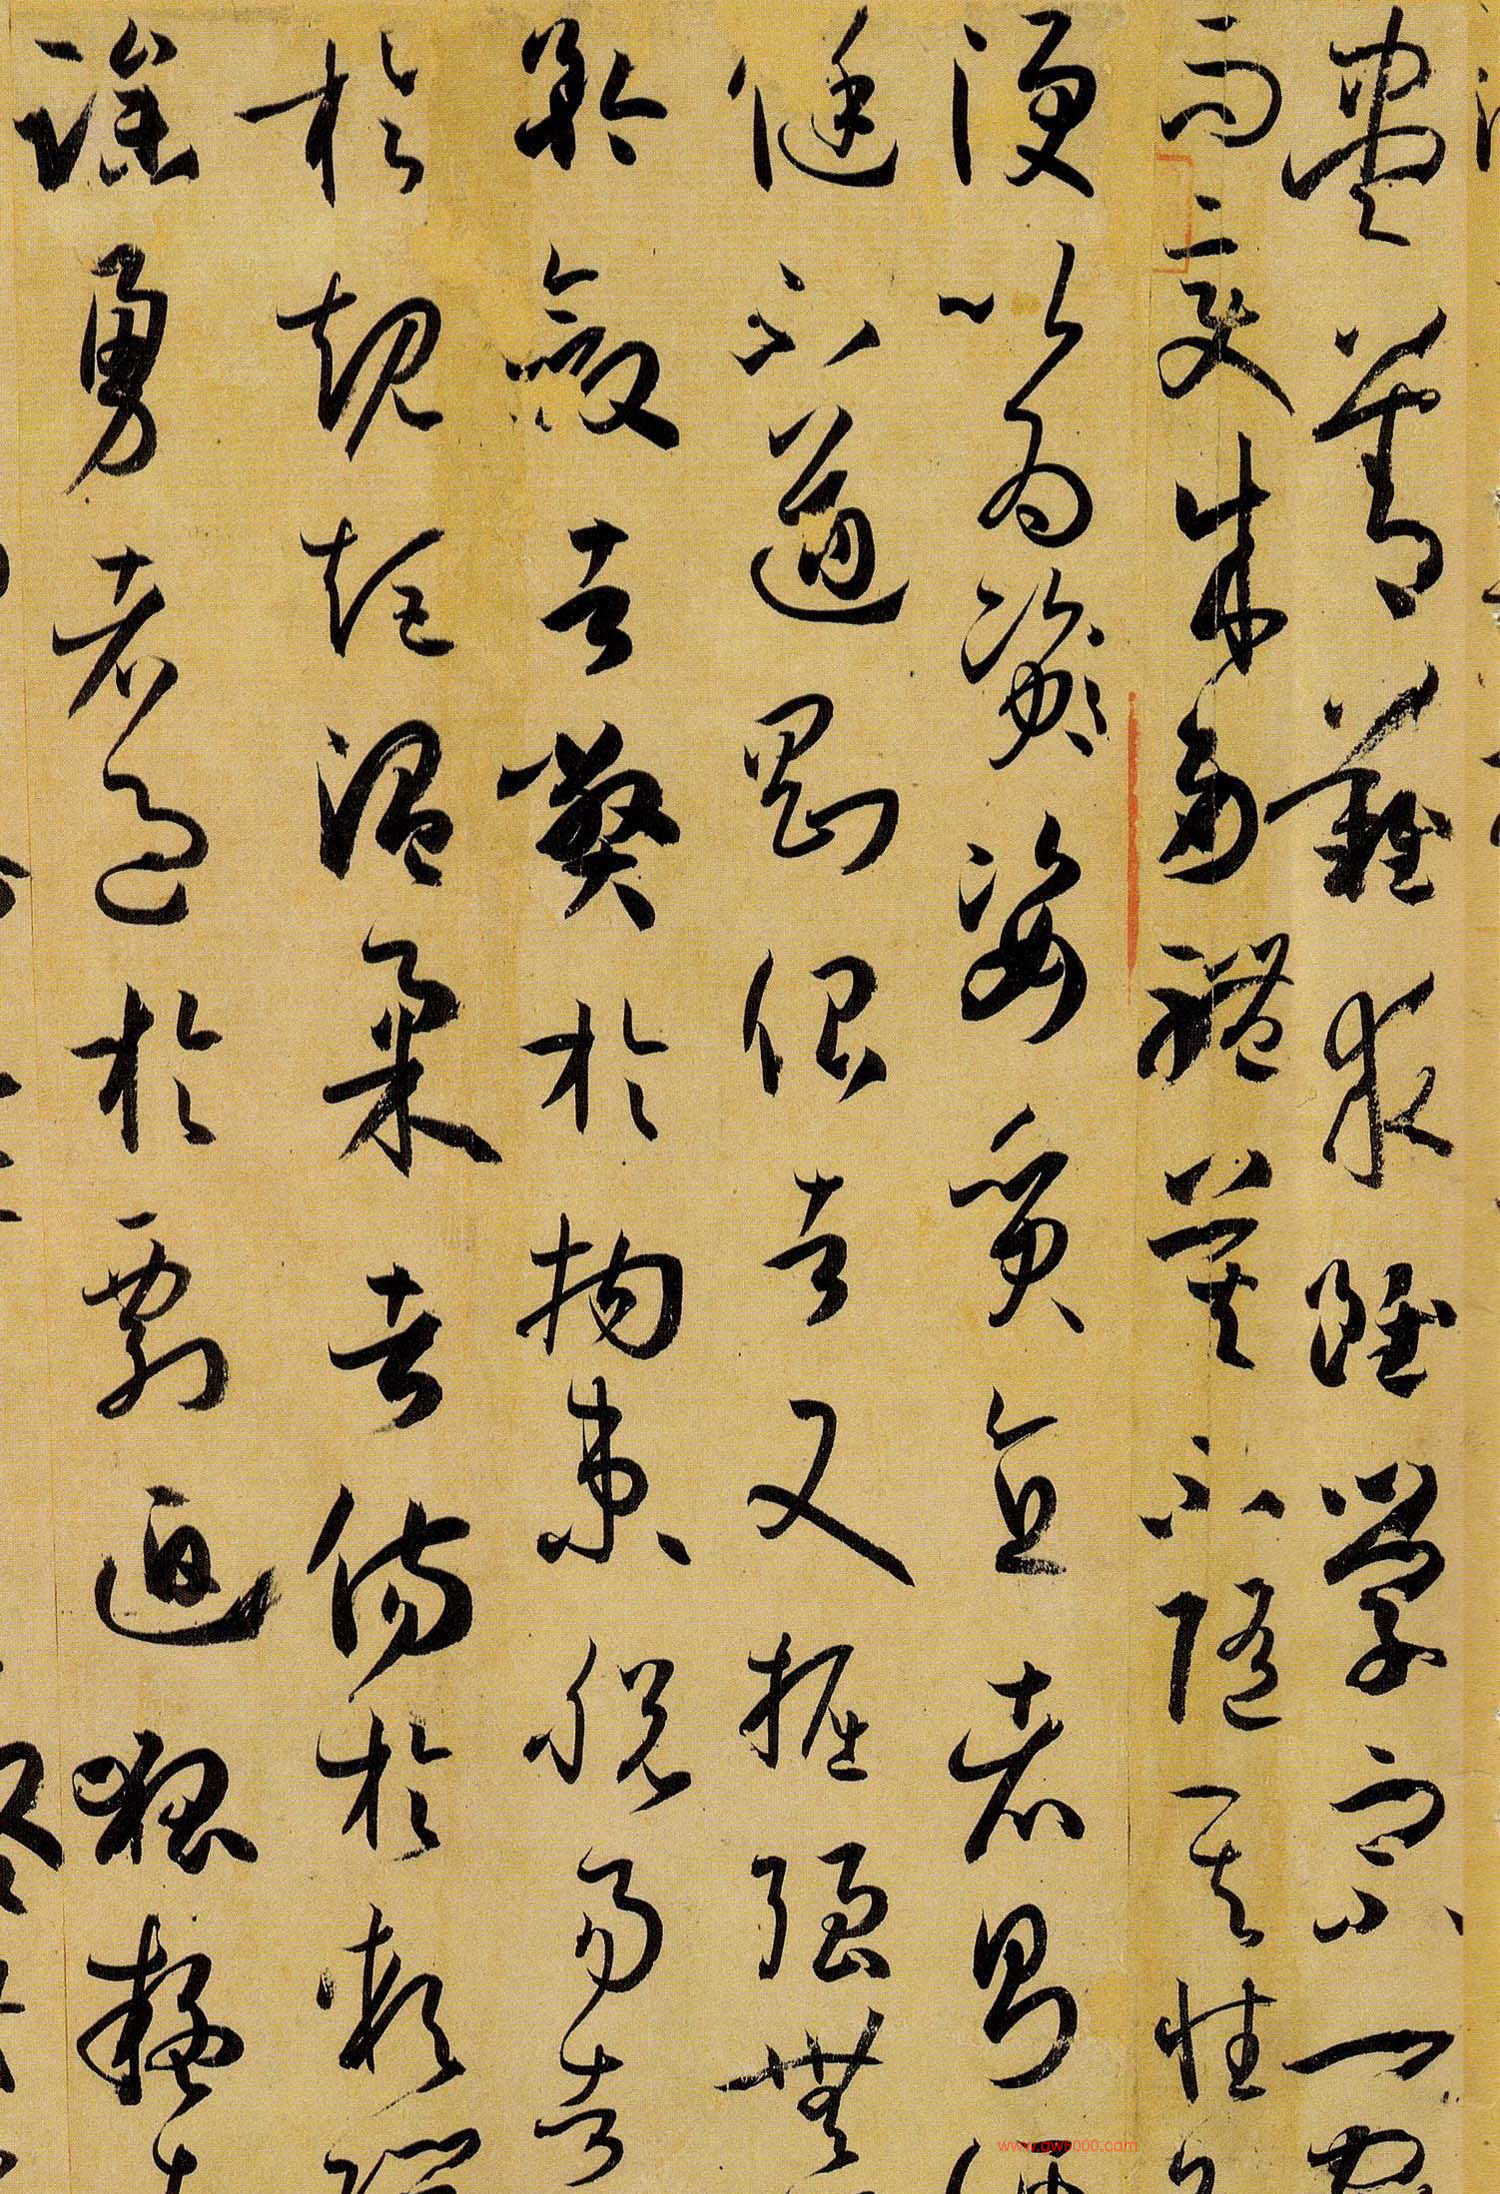 盡善難求雖學宗一家
而變成多體莫不隨其性
便以為資姿質直者則
侹不遒剛佷者又掘強無
矜斂者弊於拘束脫易者
於規矩溫柔者傷於軟
躁勇者過於剽迫狐疑